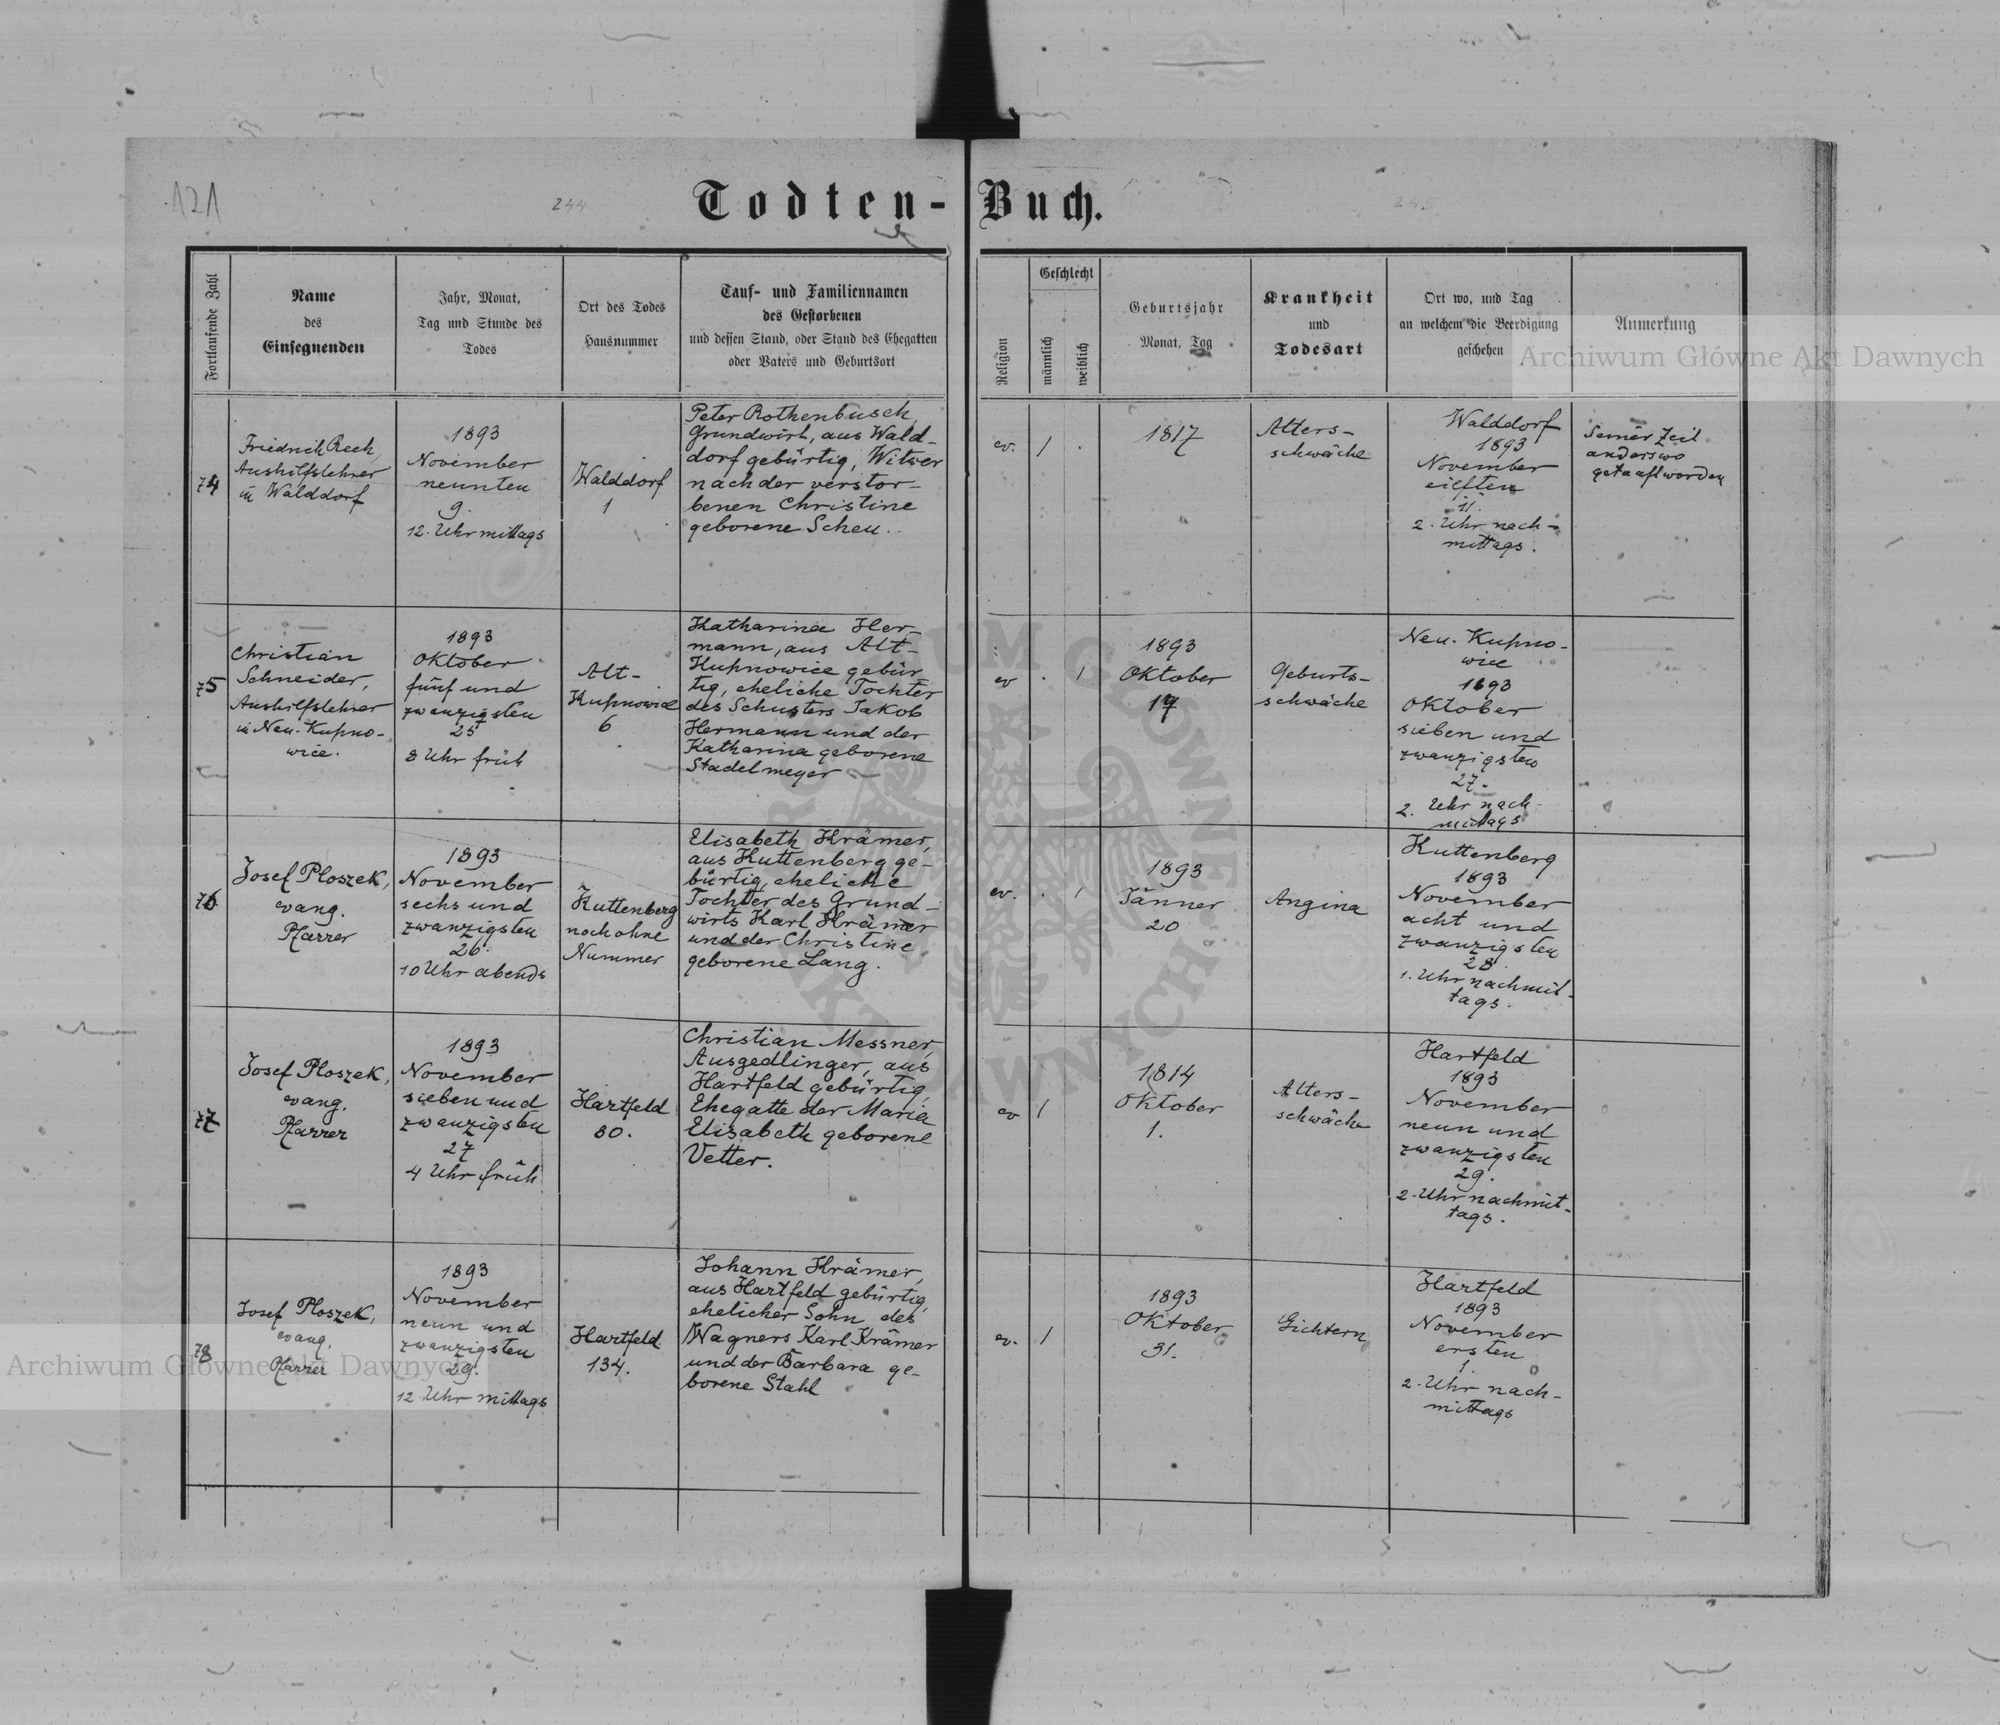 121
244
Todten-Buch.
245
Fortlaufende Zahl
Name
des
Einsegnenden
Jahr, Monat,
Tag und Stunde des
Todes
Ort des Todes
Hausnummer
Tauf- und Familiennamen
des Gestorbenen
und dessen Stand, oder Stand des Ehegatten
oder Vaters und Geburtsort
Religion
Geschlecht
männlich
weiblich
Geburtsjahr
Monat, Tag
Krankheit
und
Todesart
Ort wo, und Tag
an welchem die Beerdigung
geschehen
Anmerkung
Archiwum Główne Akt Dawnych
74
Friedrich Rech,
Aushilfslehrer
in Walddorf
1893
November
neunten
9.
12. Uhr mittags
Walddorf
1
Peter Rothenbusch,
Grundwirt, aus Wald-
dorf gebürtig, Witwer
nach der verstor-
benen Christine
geborene Scheu.
ev.
1
1817
Alters-
schwäche
Walddorf
1893
November
eilften
11.
2. Uhr nach-
mittags.
Seiner Zeit
anderswo
getauft worden
75
Christian
Schneider,
Aushilfslehrer
in Neu-Kupno-
wice.
1893
Oktober
fünf und
zwanzigsten
25
8 Uhr früh
Alt-
Kupnowice
6
Katharina Her-
mann, aus Alt-
Kupnowice gebür
tig, eheliche Tochter
des Schusters Jakob
Hermann und der
Katharina geborene
Stadelmeyer
ev
1
1893
Oktober
17
Geburts-
schwäche
Neu-Kupno-
wice
1893
Oktober
sieben und
zwanzigsten
27.
2. Uhr nach-
mittags
76
Josef Ploszek,
evang.
Pfarrer
1893
November
sechs und
zwanzigsten
26.
10 Uhr abends
Kuttenberg
noch ohne
Nummer
Elisabeth Krämer,
aus Kuttenberg ge-
bürtig, eheliche
Tochter des Grund-
wirts Karl Krämer
und der Christine
geborene Lang.
ev.
1
1893
Jänner
20
Angina
Kuttenberg
1893
November
acht und
zwanzigsten
28.
1. Uhr nachmit-
tags.
77
Josef Ploszek,
evang.
Pfarrer
1893
November
sieben und
zwanzigsten
27
4 Uhr früh
Hartfeld
80.
Christian Messner,
Ausgedlinger, aus
Hartfeld gebürtig,
Ehegatte der Maria
Elisabeth geborene
Vetter.
ev
1
1814
Oktober
1.
Alters-
schwäche
Hartfeld
1893
November
neun und
zwanzigsten
29.
2. Uhr nachmit-
tags.
78
Josef Ploszek,
evang.
Pfarrer
1893
November
neun und
zwanzigsten
29.
12 Uhr mittags
Hartfeld
134.
Johann Krämer,
aus Hartfeld gebürtig,
ehelicher Sohn des
Wagners Karl Krämer
und der Barbara ge-
borene Stahl
ev.
1
1893
Oktober
31.
Gichtern
Hartfeld
1893
November
ersten
1.
2. Uhr nach-
mittags
Archiwum Główne Akt Dawnych